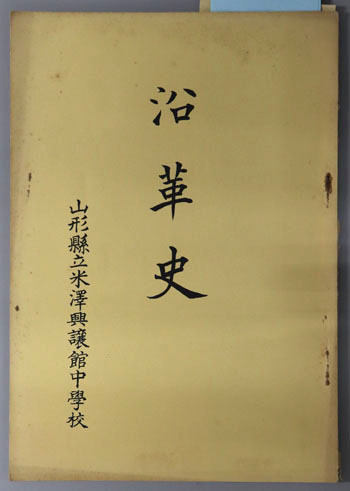 沿革史
山形縣立米澤興譲館中學校